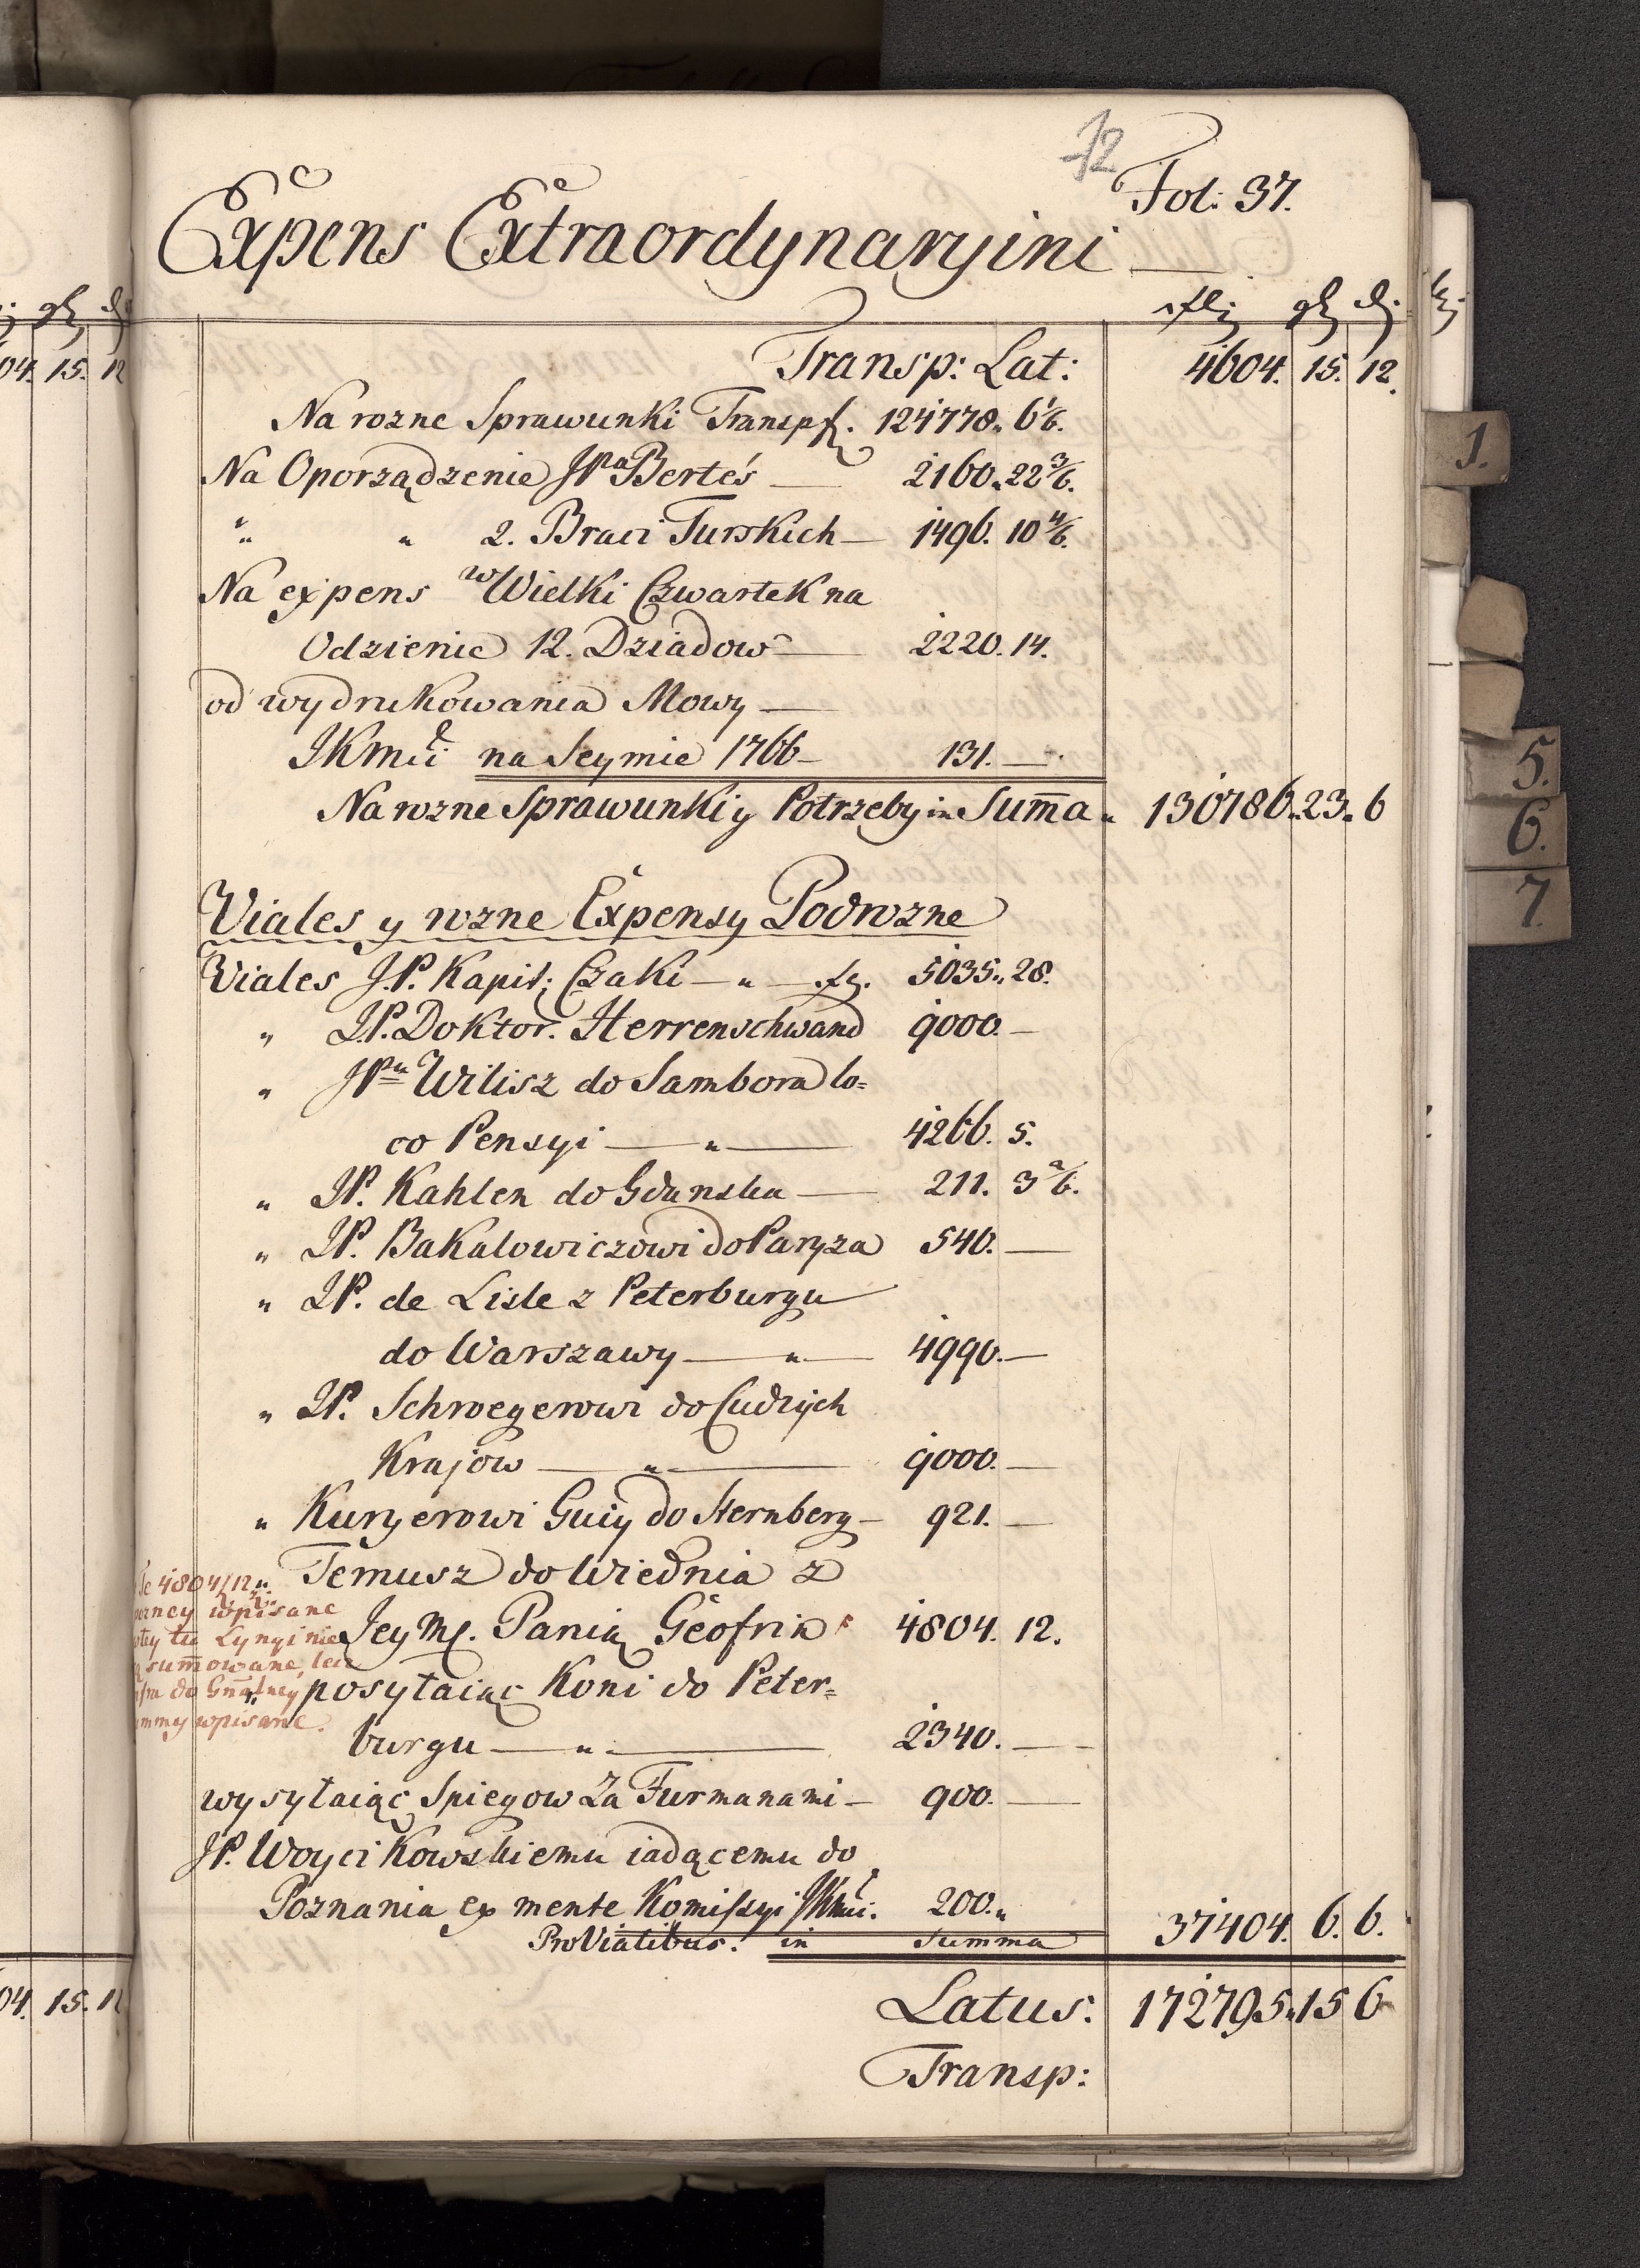 12
Fol: 37.
Expens Extraordynaryini
fl: gr d:
04. 15. 12
Transp: Lat: 4604. 15. 12.
Na rozne Sprawunki Transp f. 124778. 6 1/6.
Na Oporządzenie JPa Bertes 2160. 22 3/6.
" " 2. Braci Turskich 1496. 10 4/6.
Na expens w Wielki Czwartek na
Odzienie 12. Dziadow 2220. 14.
od wydrukowania Mowy
JKmci na Seymie 1766 131. —
Na rozne Sprawunki y Potrzeby in Suma 130786. 23. 6
Viales y rozne Expensy Podrozne
Viales J.P. Kapit: Czaki — " — fl. 5035. 28.
" JP. Doktor. Herrenschwand 9000. —
" JPu Wilisz do Sambora lo=
co Pensyi — " — 4266. 5.
" JP. Kahlen do Gdanska — 211. 3 2/6.
" JP. Bakalowiczowi do Paryza 540. —
" JP. de Lisle z Peterburgu
do Warszawy — " — 4990. —
" JP. Schwegerowi do Cudzych
Krajow — " — 9000. —
" Kuryerowi Guiy do Sternberg — 921. —
" Temusz do Wiednia z
Jey Mć. Panią Geofrin 4804. 12.
" posytaiąc Koni do Peter=
burgu — " — 2340. —
wysytaiąc Spiegow za Furmanami — 900. —
JP. Woycikowskiemu iadącemu do
Poznania ex mente Komissyi JKmci. 200. "
Pro Vialibus. in Summa 37404. 6. 6.
4804/12
wpisane
tu Lynyi nie
sumowane, lecz
do Gnalney
wpisane.
04. 15. 12
Latus: 172795. 15 6
Transp:
1.
5.
6.
7.